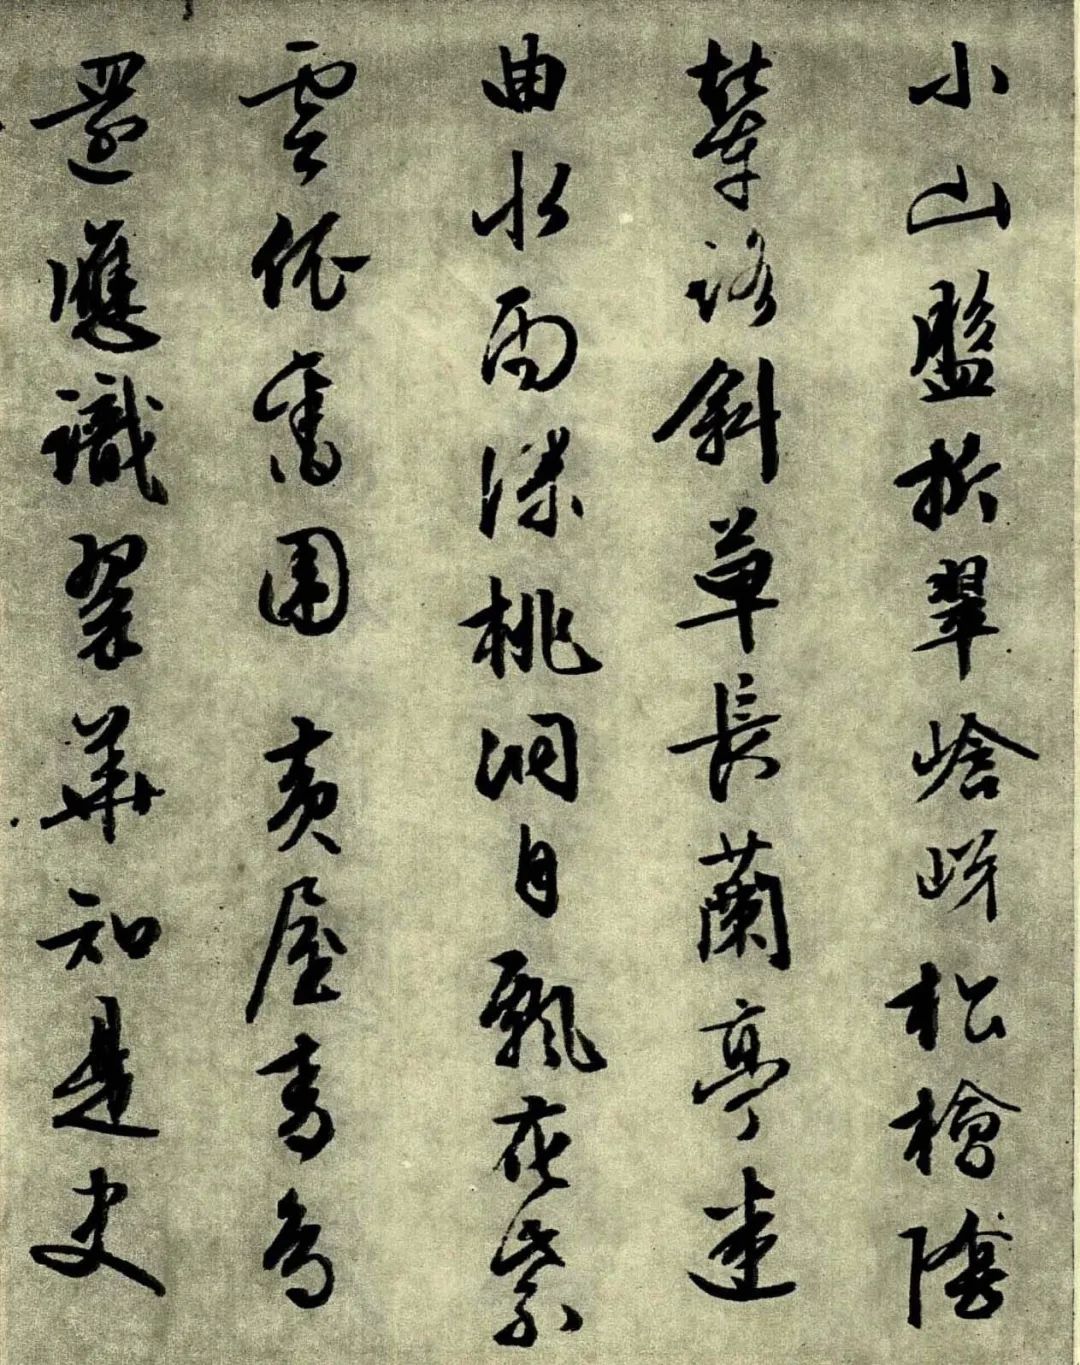 小山盤折翠㟏岈松檜陰
輦路斜草長蘭亭迷
曲水雨深桃洞自飄花紫
雲依舊圍黃屋青鳥
還應識翠華知是史